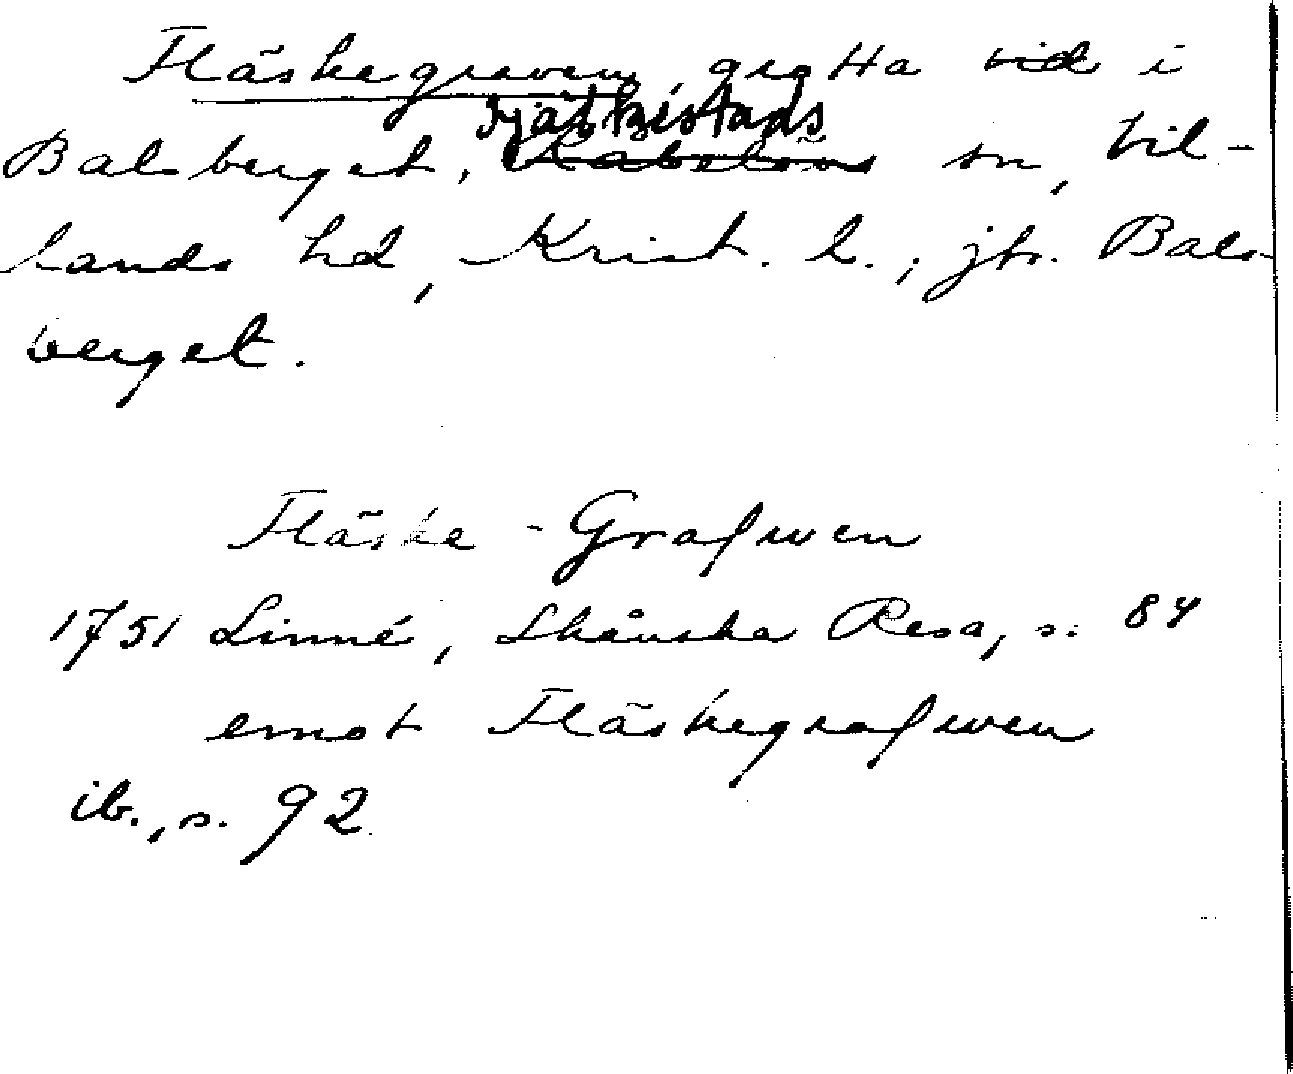 Fläskegraven, grotta vid i
Fjälkistads
Balsberget, sn, Vil-
lands hd, Krist. l.; jfr. Bals-
berget.
Fläske-Grafwen
1751 Linné, Skånska Resa, s. 84
emot Fläskegrafwen
ib., s. 92